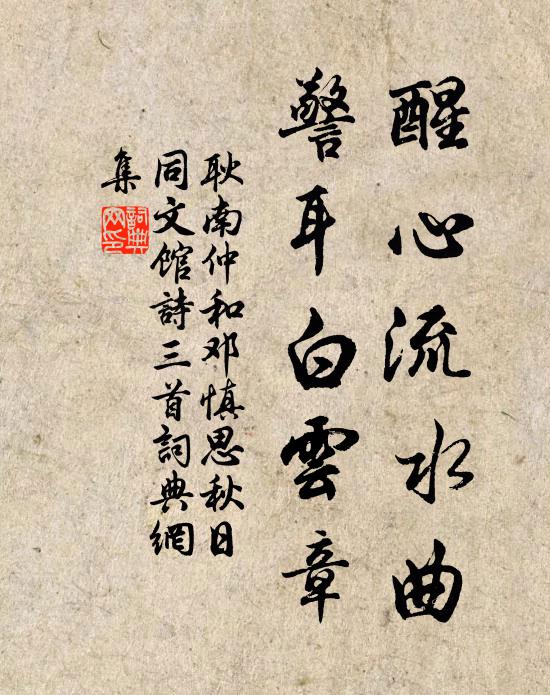 醒心流水曲
警耳白雲章
耿南仲和邓慎思秋日
同文馆詩三首詞典網
集
詞典
网印